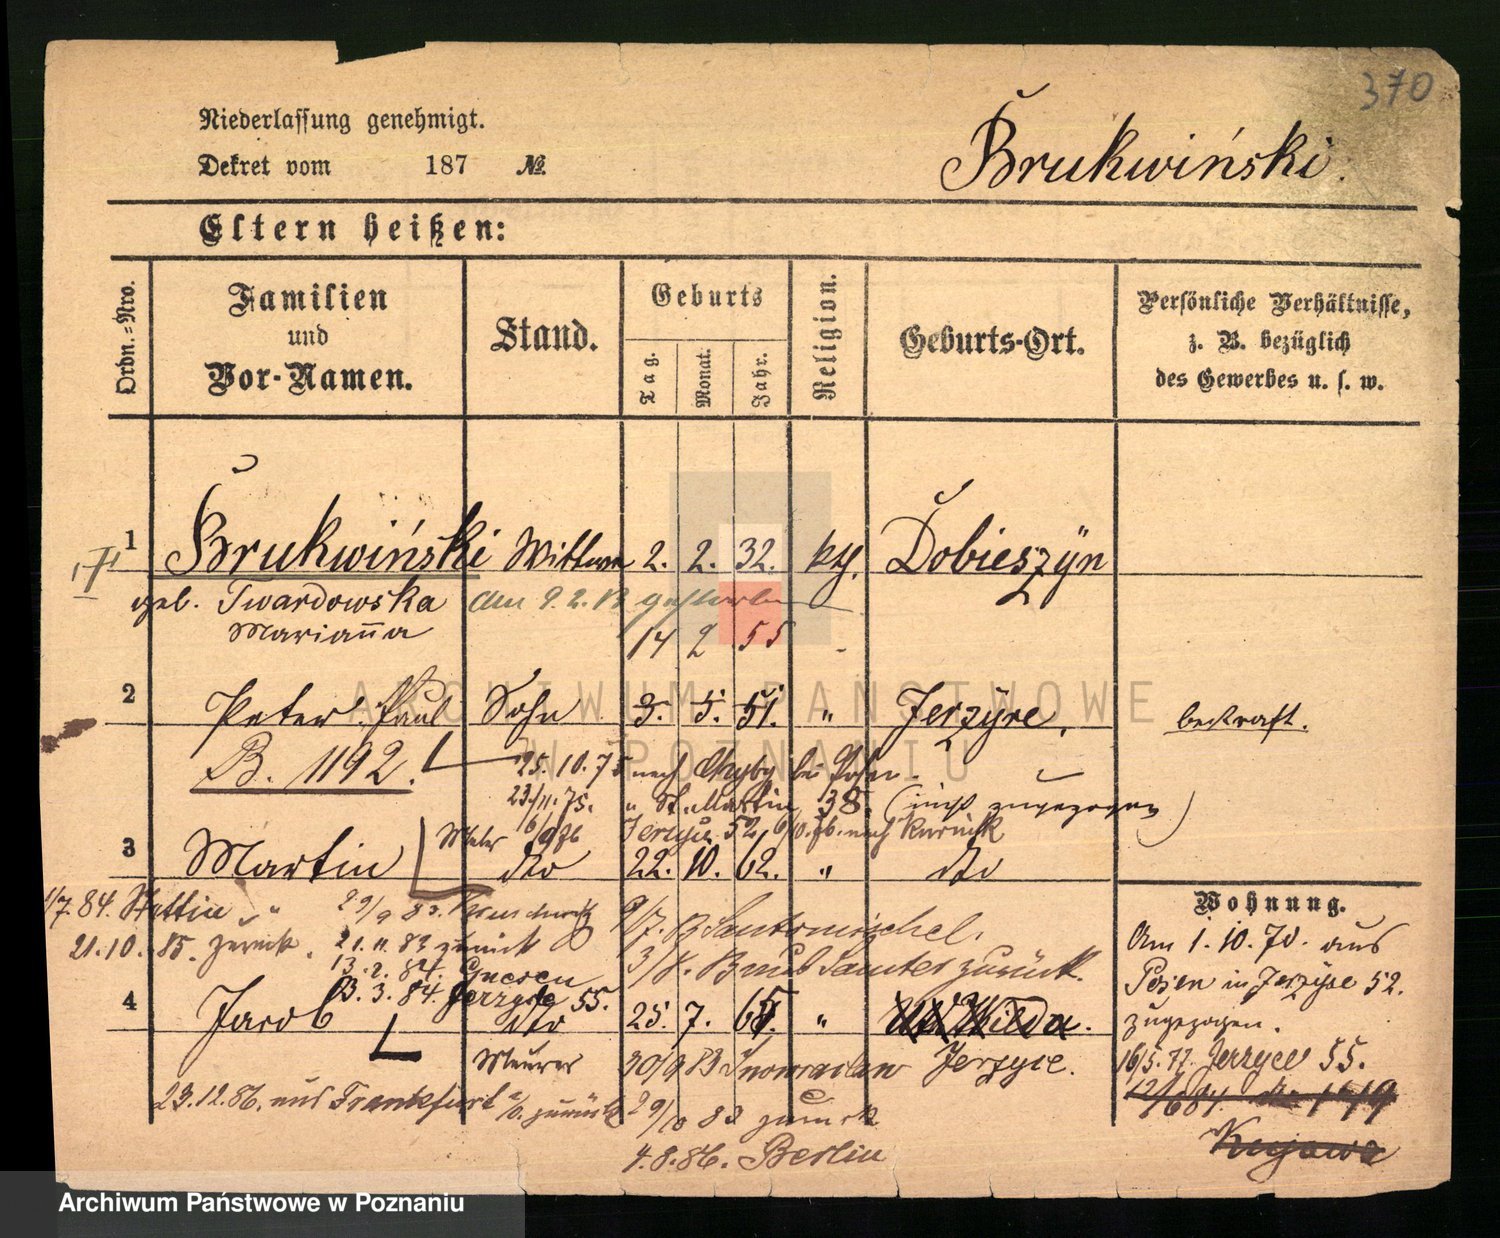 370
Niederlassung genehmigt.
Dekret vom 187 №
Brukwiński.
Eltern heißen:
Ordn.=Nro.
Familien und Vor-Namen.
Stand.
Geburts
Tag.
Monat.
Jahr.
Religion.
Geburts-Ort.
Persönliche Verhältnisse,
z. B. bezüglich
des Gewerbes u. s. w.
1 Brukwiński Wittwe 2. 2. 32. kth. Dobieszyn
geb. Twardowska den 9. 2. 13 gestorben
Marianna 14 2 55
2 Peter Paul Sohn 3. 5. 51. " Jerzyce, bestraft.
B. 1192. 25. 10. 75 nach bei Posen
23/11. 75. " St. Martin 38. ( zugezogen )
Jerzyce 52, nach zurück
3 Martin dto 22. 10. 62. " dto
1/7. 84. Stettin 29/9 83.
21. 10. 85. zurück. 21. 11. 83 zurück
13. 2. 84. Gnesen
13. 3. 84. Jerzyce 55.
9/7. 13 Santomischel.
3/8. zurück.
4 Jacob dto 25. 7. 65. " Wilda.
Maurer 30/9 83 Inowraclaw Jerzyce.
23. 12. 86. aus Frankfurt a/O. zurück 29/10 83 zurück
4. 8. 86. Berlin
Wohnung.
Am 1. 10. 70. aus
Posen in Jerzyce 52.
zugezogen.
16/5. 77. Jerzyce 55.
12/6 84.
ARCHIWUM PAŃSTWOWE
W POZNANIU
Archiwum Państwowe w Poznaniu